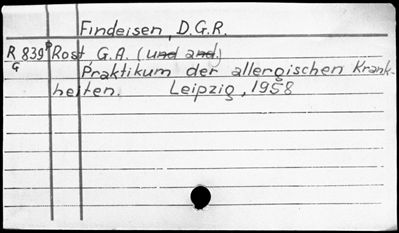 Findeisen, D.G.R.
R/G 839p Rost, G.A. (und and.)
Praktikum der allergischen Krank-
heiten. Leipzig, 1958